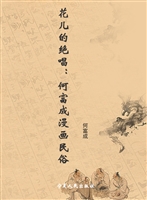 花儿的绝唱：何富成漫画民俗
何富成